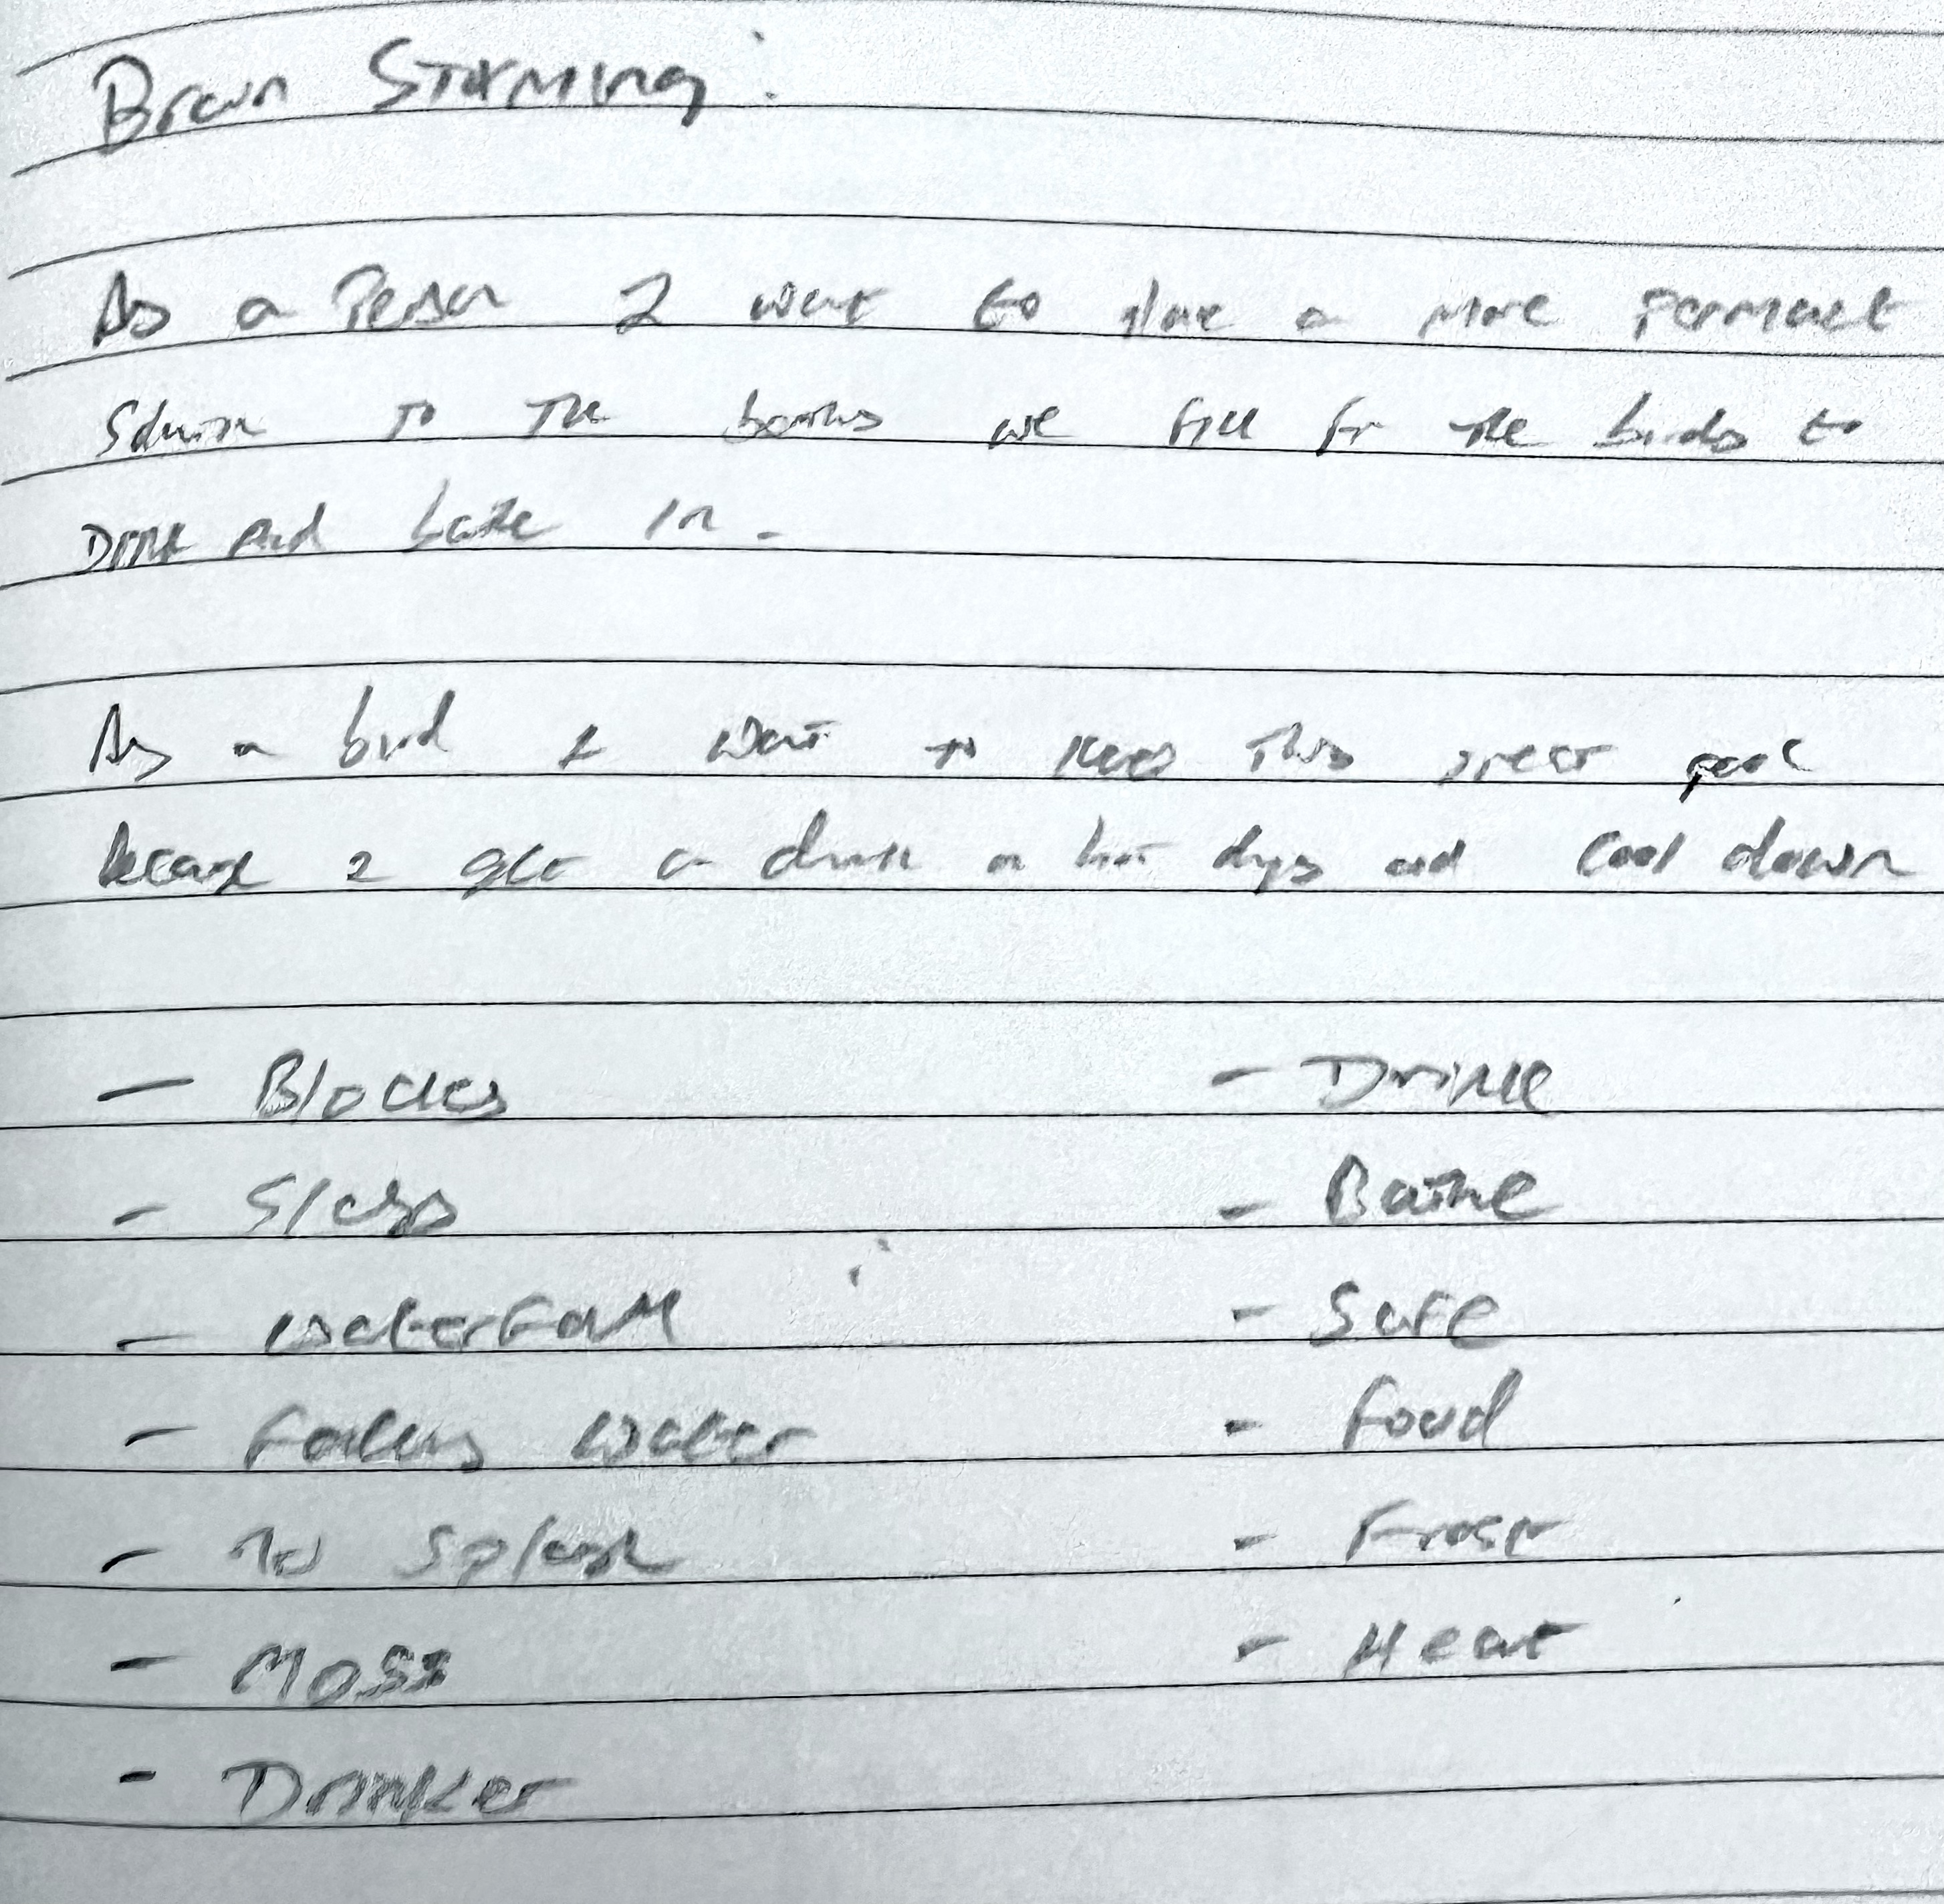 Brain Storming:
As a Person I want to have a more permanent
Solution to the baths we fill for the birds to
Drink And bathe in.
As a bird I want to keep this great pool
because I get a drink on hot days and cool down
- Blocks
- Slabs
- Waterfall
- Falling water
- No Splash
- Moss
- Drinker
- Drink
- Bathe
- Safe
- Food
- Frost
- Heat